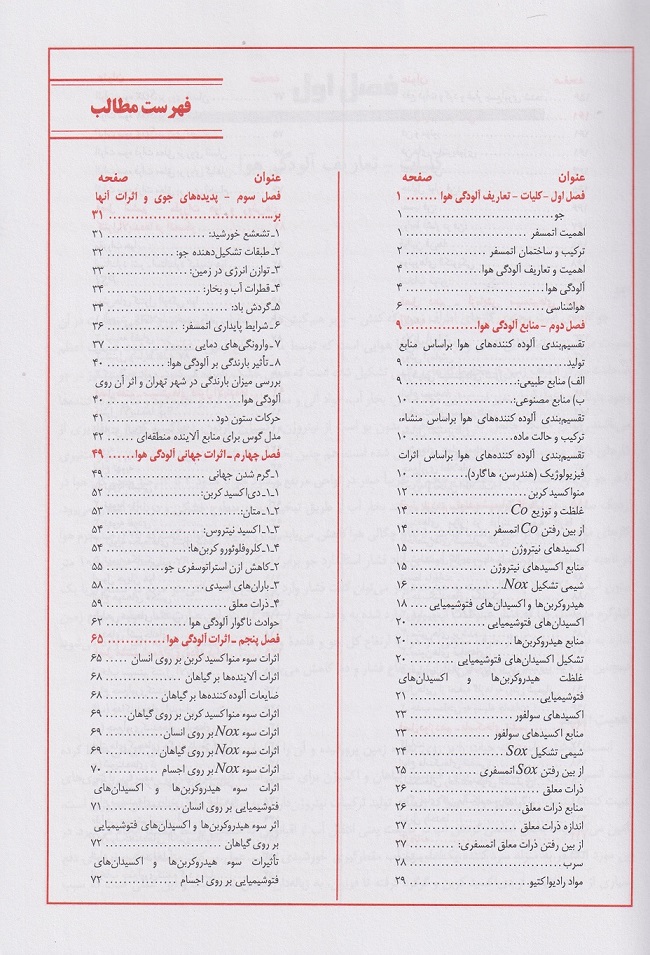 فهرست مطالب
عنوان صفحه
فصل اول - کلیات - تعاریف آلودگی هوا ....... ۱
جو............................ ۱
اهمیت اتمسفر ...................... ۱
ترکیب و ساختمان اتمسفر ............... ۲
اهمیت و تعاریف آلودگی هوا.............. ۴
آلودگی هوا......................... ۴
هواشناسی ......................... ۶
فصل دوم - منابع آلودگی هوا............... ۹
تقسیم‌بندی آلوده کننده‌های هوا براساس منابع
تولید............................. ۹
الف) منابع طبیعی:.................... ۹
ب) منابع مصنوعی:................... ۱۰
تقسیم‌بندی آلوده کننده‌های هوا براساس منشاء،
ترکیب و حالت ماده................... ۱۰
تقسیم‌بندی آلوده کننده‌های هوا براساس اثرات
فیزیولوژیک (هندرسن، هاگارد)........... ۱۰
منواکسید کربن ..................... ۱۲
غلظت و توزیع Co ................... ۱۴
از بین رفتن Co اتمسفر ................ ۱۴
اکسیدهای نیتروژن ................... ۱۵
منابع اکسیدهای نیتروژن ............... ۱۵
شیمی تشکیل Nox................... ۱۶
هیدروکربن‌ها و اکسیدان‌های فتوشیمیایی .... ۱۸
اکسیدان‌های فتوشیمیایی ............... ۲۰
منابع هیدروکربن‌ها ................... ۲۰
تشکیل اکسیدان‌های فتوشیمیایی .......... ۲۰
غلظت هیدروکربن‌ها و اکسیدان‌های
فتوشیمیایی........................ ۲۱
اکسیدهای سولفور ................... ۲۳
منابع اکسیدهای سولفور ................ ۲۳
شیمی تشکیل Sox ................... ۲۴
از بین رفتن Sox اتمسفری .............. ۲۵
ذرات معلق ........................ ۲۶
منابع ذرات معلق..................... ۲۶
اندازه ذرات معلق .................... ۲۷
از بین رفتن ذرات معلق اتمسفری: ......... ۲۷
سرب ............................ ۲۸
مواد رادیواکتیو...................... ۲۹
عنوان صفحه
فصل سوم - پدیده‌های جوی و اثرات آنها
بر............................... ۳۱
۱ـ تشعشع خورشید: .................. ۳۱
۲ـ طبقات تشکیل‌دهنده جو: ............. ۳۲
۳ـ توازن انرژی در زمین: ............... ۳۳
۴ـ قطرات آب و بخار: ................. ۳۴
۵ـ گردش باد: ...................... ۳۴
۶ـ شرایط پایداری اتمسفر: .............. ۳۶
۷ـ وارونگی‌های دمایی ................ ۳۷
۸ـ تأثیر بارندگی بر آلودگی هوا: .......... ۴۰
بررسی میزان بارندگی در شهر تهران و اثر آن روی
آلودگی هوا........................ ۴۰
حرکات ستون دود ................... ۴۱
مدل گوس برای منابع آلاینده منطقه‌ای ...... ۴۲
فصل چهارم ـ اثرات جهانی آلودگی هوا...... ۴۹
۱ـ گرم شدن جهانی .................. ۴۹
۱ـ۱ـ دی‌اکسید کربن:................. ۵۲
۱ـ۲ـ متان:........................ ۵۳
۱ـ۳ـ اکسید نیتروس: ................. ۵۴
۱ـ۴ـ کلروفلوئورو کربن‌ها: ............. ۵۴
۲ـ کاهش ازن استراتوسفری جو........... ۵۵
۳ـ باران‌های اسیدی .................. ۵۸
۴ـ ذرات معلق ...................... ۵۹
حوادث ناگوار آلودگی هوا .............. ۶۲
فصل پنجم ـ اثرات آلودگی هوا............. ۶۵
اثرات سوء منواکسید کربن بر روی انسان ..... ۶۵
اثرات آلاینده‌ها بر گیاهان .............. ۶۸
ضایعات آلوده کننده‌ها بر گیاهان .......... ۶۸
اثرات سوء منواکسید کربن بر روی گیاهان..... ۶۹
اثرات سوء Nox بر روی انسان ........... ۶۹
اثرات سوء Nox بر روی گیاهان........... ۶۹
اثرات سوء Nox بر روی اجسام ........... ۷۰
اثرات سوء هیدروکربن‌ها و اکسیدان‌های
فتوشیمیایی بر روی انسان............... ۷۱
اثر سوء هیدروکربن‌ها و اکسیدان‌های فتوشیمیایی
بر روی گیاهان ...................... ۷۲
تأثیرات سوء هیدروکربن‌ها و اکسیدان‌های
فتوشیمیایی بر روی اجسام .............. ۷۲